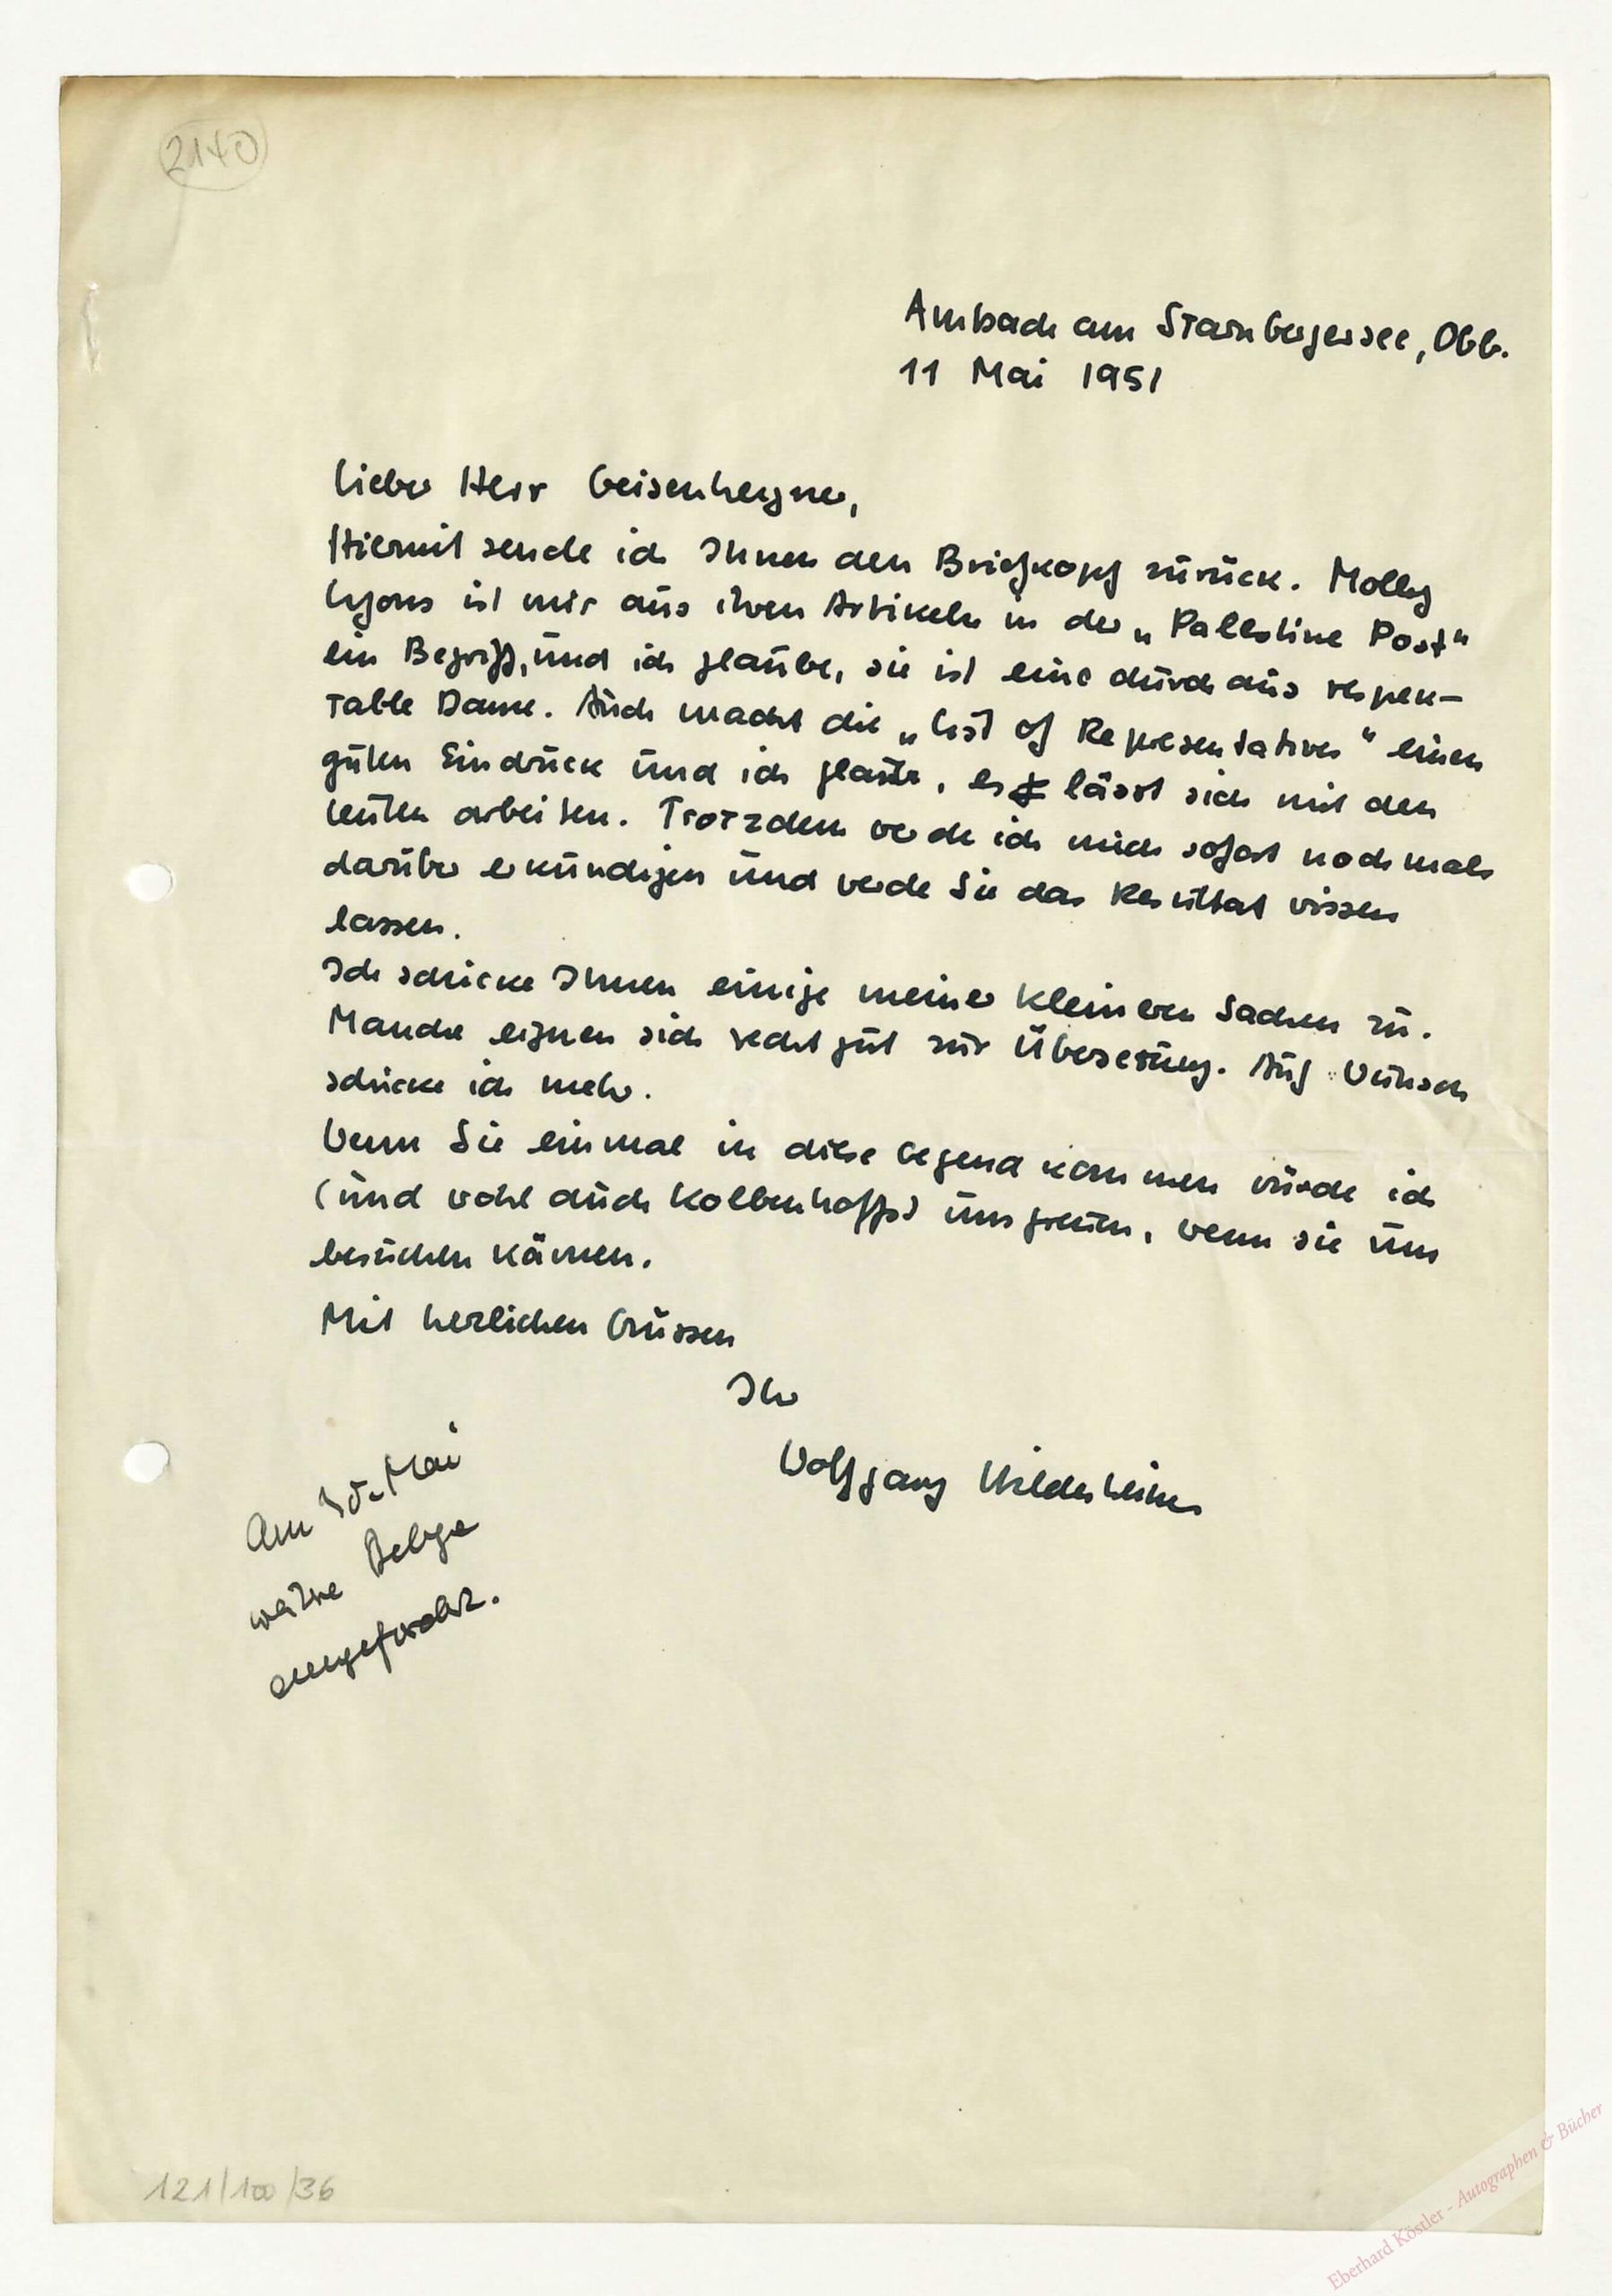 2140
Ambach am Starnbergersee, Obb.
11 Mai 1951
Lieber Herr Geisenheyner,
Hiermit sende ich Ihnen den Briefkopf zurück. Molly
Lyons ist mir aus ihren Artikeln in der „Palestine Post"
ein Begriff, und ich glaube, sie ist eine durchaus respek-
table Dame. Auch macht die „List of Representatives" einen
guten Eindruck und ich glaube, es lässt sich mit den
Leuten arbeiten. Trotzdem werde ich mich sofort nochmals
darüber erkundigen und werde Sie das Resultat wissen
lassen.
Ich schicke Ihnen einige meiner kleineren Sachen zu.
Manche eignen sich recht gut zur Übersetzung. Auf Wunsch
schicke ich mehr.
Wenn Sie einmal in diese Gegend kommen würde ich
(und wohl auch Kolbenhoffs) uns freuen, wenn sie uns
besuchen kämen.
Mit herzlichen Grüssen
Ihr
Wolfgang Hildesheimer
Am 30. Mai
weitere Belege
angefordert.
121/100/36
Eberhard Köstler - Autographen & Bücher